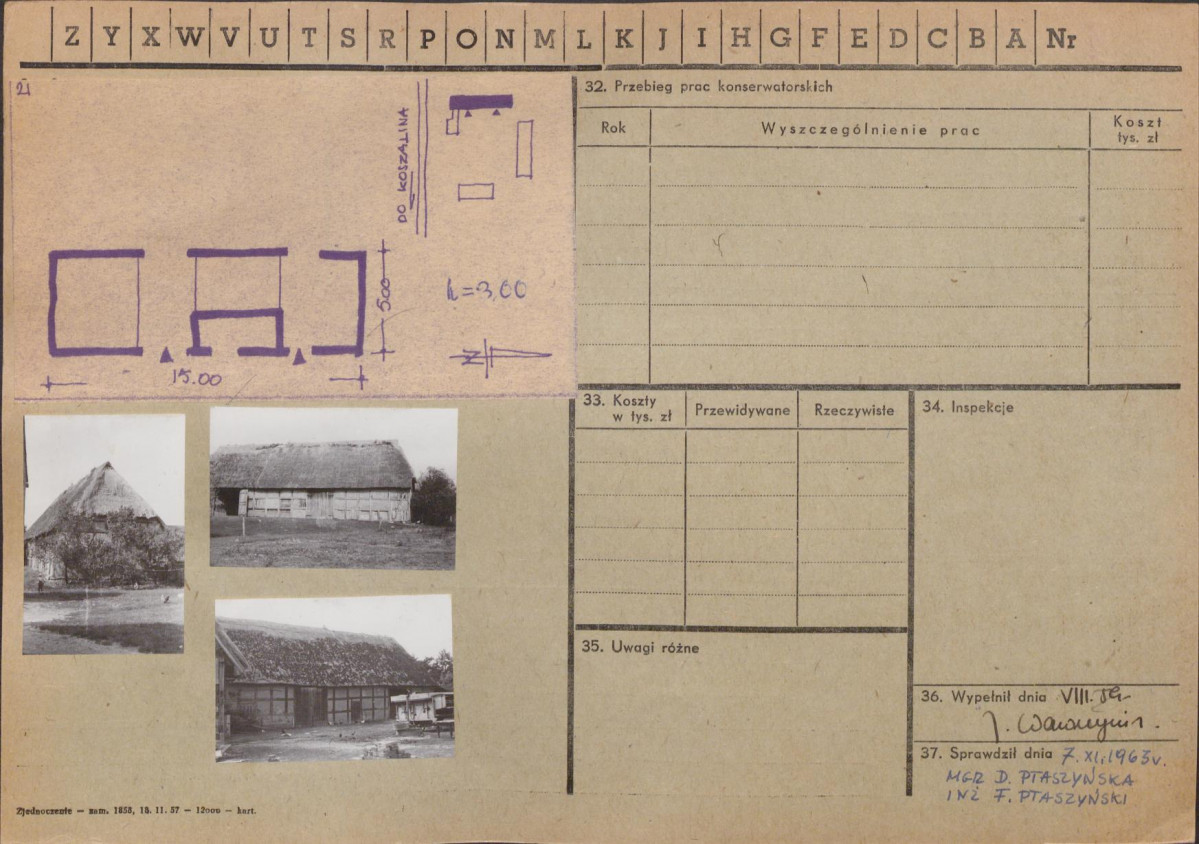 Z Y X W V U T S R P O N M L K J I H G F E D C B A Nr
21
DO KOSZALINA
5.00
h=3,00
15.00
N
32. Przebieg prac konserwatorskich
Rok
Wyszczególnienie prac
Koszt
tys. zł
33. Koszty
w tys. zł
Przewidywane
Rzeczywiste
34. Inspekcje
35. Uwagi różne
36. Wypełnił dnia VIII.
J.
37. Sprawdził dnia 7.XI.1963r.
MGR D. PTASZYŃSKA
INŻ F. PTASZYŃSKI
Zjednoczenie — zam. 1858, 18. 11. 57 — 12000 — kart.